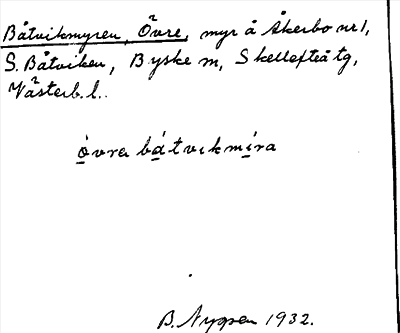 Båtvikmyren, Övre, myr å Åkerbo nr 1,
S. Båtviken, Byske sn, Skellefteå tg,
Västerb. l..
òvra bátvıkmíra
B. Nygren 1932.